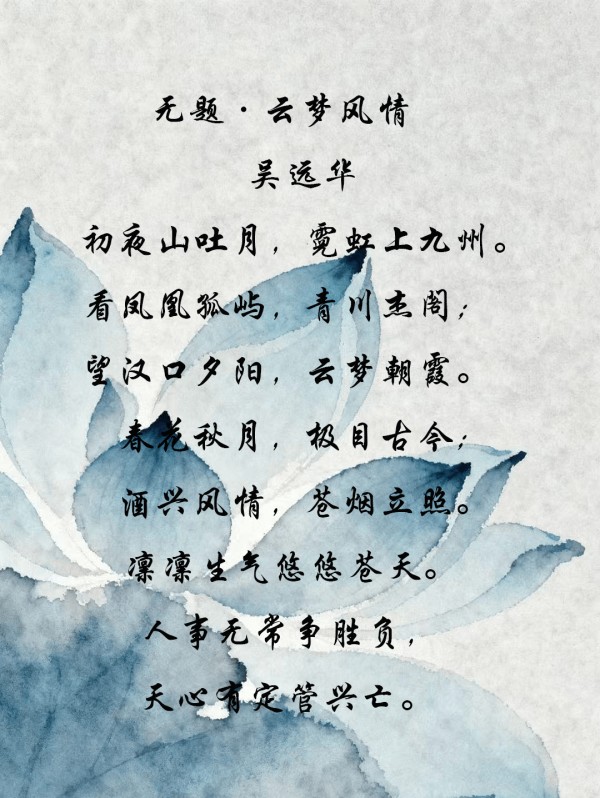 无题·云梦风情
吴远华
初夜山吐月，霓虹上九州。
看凤凰孤屿，青川杰阁；
望汉口夕阳，云梦朝霞。
春花秋月，极目古今；
酒兴风情，苍烟立照。
凛凛生气悠悠苍天。
人事无常争胜负，
天心有定管兴亡。